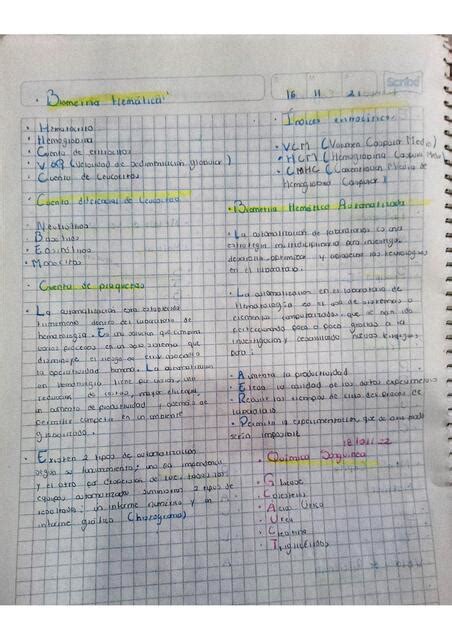 Scribe
16 11 21
• Biometria Hemática
• Hematocrito
• Hemoglobina
• Cuenta de eritrocitos
• VSG (Velocidad de sedimentación globular)
• Cuenta de Leucocitos
• Cuenta diferencial de Leucocitos
• Neutrofilos
• Basofilos
• Eosinofilos
• Monocitos
• Cuenta de plaquetas
• La automatización esta establecida
dentro del laboratorio de
hematologia. Es una solución que
varios procesos en un solo sistema que
disminuye el riesgo de
la operatividad humana. La automatización
en Hematologia tiene por
reducción de costos, mayor eficacia,
un aumento de productividad además de
permitir competir en un ambiente
globalizado.
• Existen 2 tipos de automatización
según su funcionamiento; una por impedancia
y el otro por dispersión de luz, todos los
equipos automatizados suministran 2 tipos de
resultados: un informe numerico y un
informe grafico (histograma)
• Indices eritrocitarios
• VCM (Volumen Corpuscular Medio)
• HCM (Hemoglobina Corpuscular Media)
• CMHC (Concentración Media de
Hemoglobina Corpuscular)
• Biometria Hemática Automatizada
• La automatización de laboratorios es una
estrategia multidisciplinaria para investigar,
desarrollar, optimizar y las tecnologias
en el laboratorio.
• La automatización en el laboratorio de
Hematologia es el uso de sistemas o
elementos computarizados, que se han ido
perfeccionando poco a poco gracias a la
investigación y nuevos
para:
• Aumenta la productividad
• Eleva la calidad de los datos experimentales
• Reducir los tiempos de ciclo del proceso de
laboratorio
• Permite la experimentación que de otro modo
seria imposible
18/01/22
• Química Sanguínea
• Glucosa
• Colesterol
• Acido Urico
• Urea
• Creatinina
• Trigliceridos